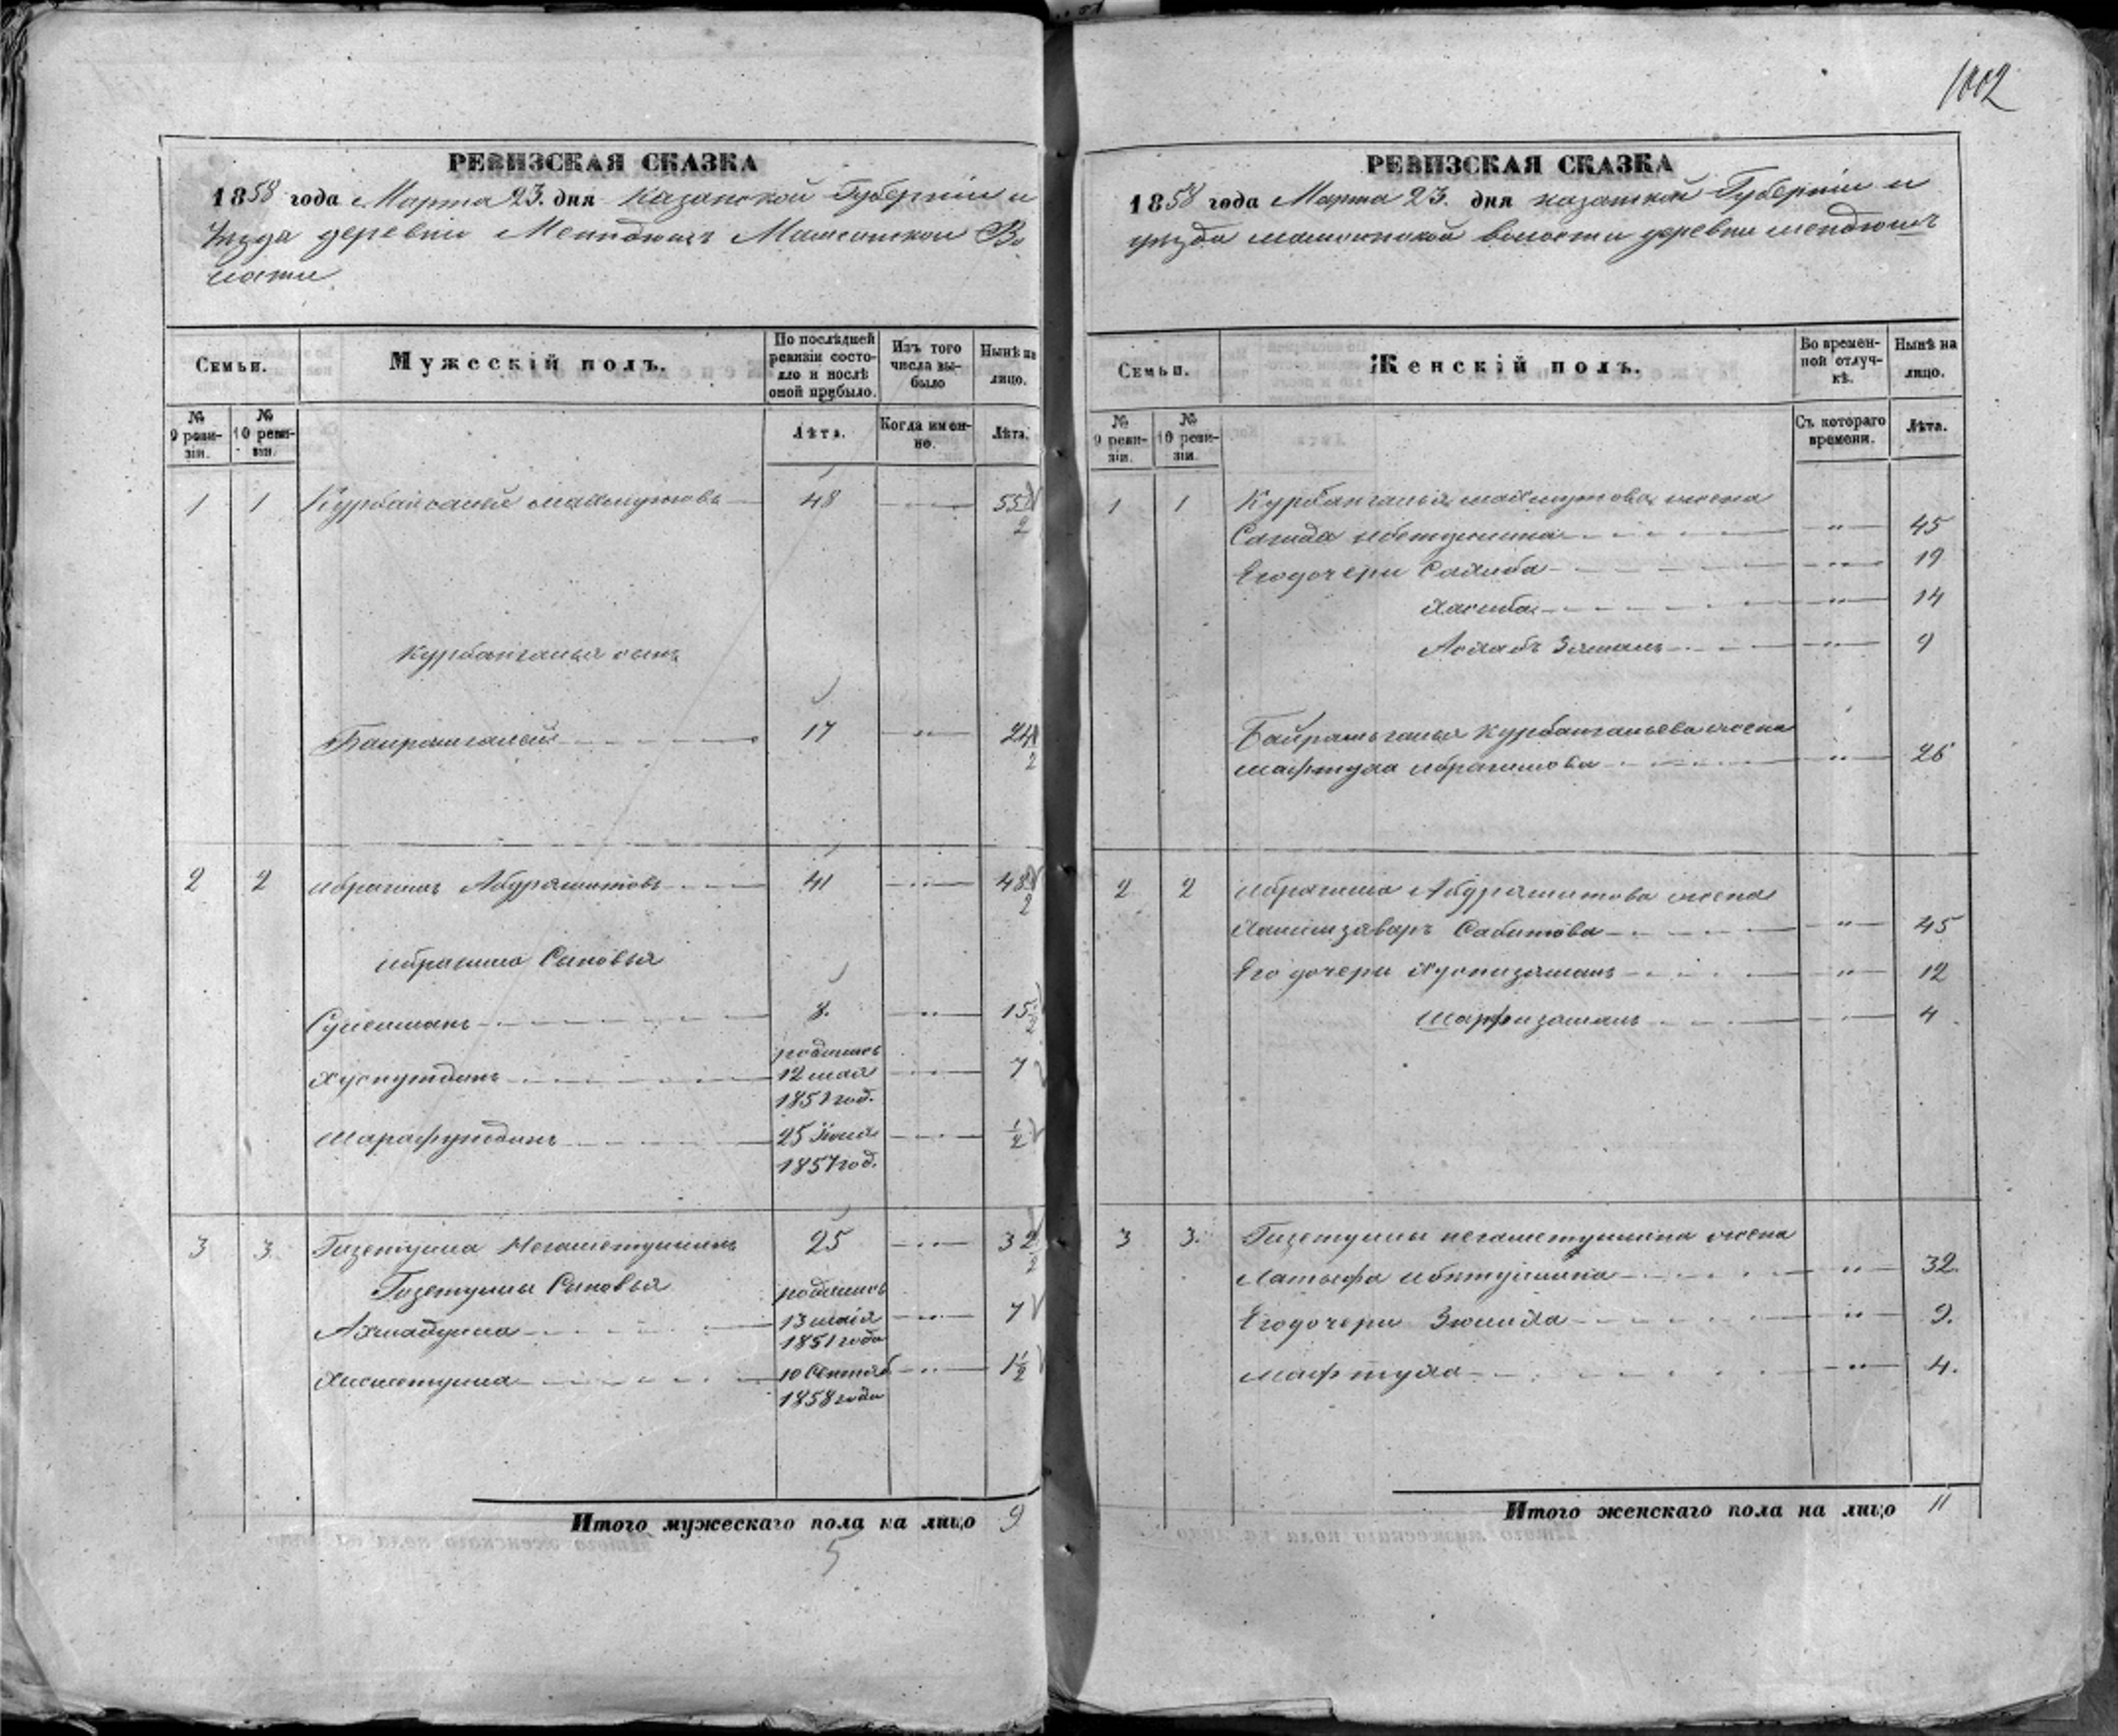 РЕВИЗСКАЯ СКАЗКА
1858 года Марта 23. дня Казанской Губернiи и
Уезда деревни Менндюшъ Мамсинской Во
лости
Семьи.
Мужескiй полъ.
По послѣдней ревизiи состояло и послѣ оной прибыло.
Изъ того числа выбыло
Нынѣ на лицо.
№ 9 ревизiи.
№ 10 ревизiи.
Лѣта.
Когда именно.
Лѣта.
1 1 Курбангалей Махмутовъ 48 55
Курбангалея сынъ
Байрамгалей 17 24
2 2 Ибрагимъ Абдрашитовъ 41 48
Ибрагима Сыновья
Сулейманъ 8. 15
родились
Хуснутдинъ 12 мая 7
1851 год.
Шарафутдинъ 25 Iюля 1/2
1857 год.
3 3. Гизетулла Негаметуллинъ 25 32
Гизетуллы Сыновья родились
Ахмадулла 13 маiя 7
1851 года
Хисметулла 10 Сентяб 1 1/2
1858 года
Итого мужескаго пола на лицо 9
5
1002
РЕВИЗСКАЯ СКАЗКА
1858 года Марта 23. дня казанской Губернiи и
уезда мамсинской волости деревни мендюшъ
Семьи.
Женскiй полъ.
Во временной отлучкѣ.
Нынѣ на лицо.
№ 9 ревизiи.
№ 10 ревизiи.
Съ котораго времени.
Лѣта.
1 1 Курбангалея махмутова жена
Сагида Ибетуллина " 45
Его дочери Салиба " 19
Хасиба " 14
Заманъ " 9
Байрамгалея Курбангалеева жена
мафтуха Ибрагимова " 26
2 2 Ибрагима Абдрашитова жена
Сабитова " 45
Его дочери Хуснизаманъ " 12
Шарфизаманъ 4
3 3. Гизетуллы негаметуллина жена
Латыфа " 32.
Его дочери Зюлиха " 9.
мафтуха " 4.
Итого женскаго пола на лицо 11